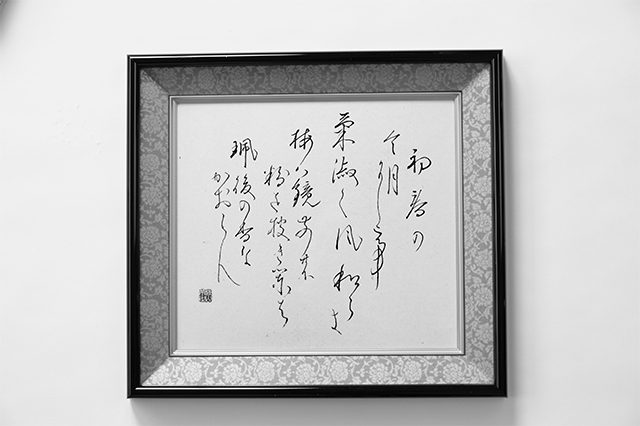 初春の
令月にして
氣淑く風和らき
梅ハ鏡前の
粉を披き蘭は
珮後の香を
かおらす